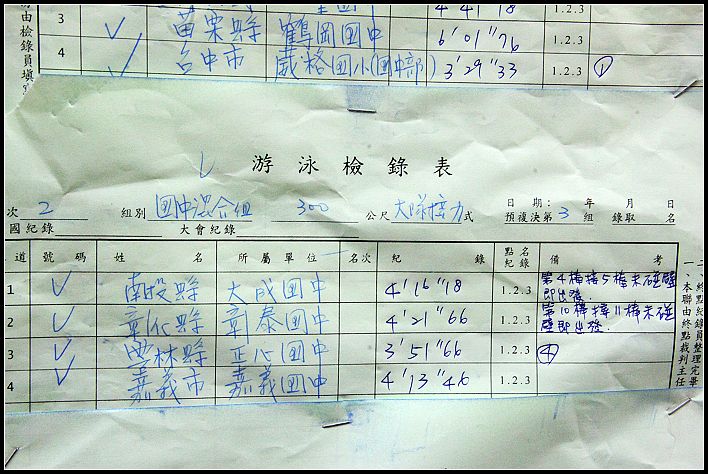 苗栗縣 鶴岡國中 6'01"76 1.2.3
4 台中市 葳格國小(國中部) 3'29"33 1.2.3 ①
游泳檢錄表
次 2 組別 國中混合組 300 公尺 大隊接力 式 日期: 年 月 日
預複決第 3 組 錄取 名
國紀錄 大會紀錄
道 號碼 姓名 所屬單位 名次 紀錄 點名紀錄 備考
1 南投縣 大成國中 4'16"18 1.2.3 第4棒接5棒未碰壁即出發.
2 彰化縣 彰泰國中 4'21"66 1.2.3 第10棒接11棒未碰壁即出發.
3 雲林縣 正心國中 3'51"66 1.2.3 ④
4 嘉義市 嘉義國中 4'13"46 1.2.3
由檢錄員填寫
本聯由終點裁判主任
終點紀錄員整理完畢